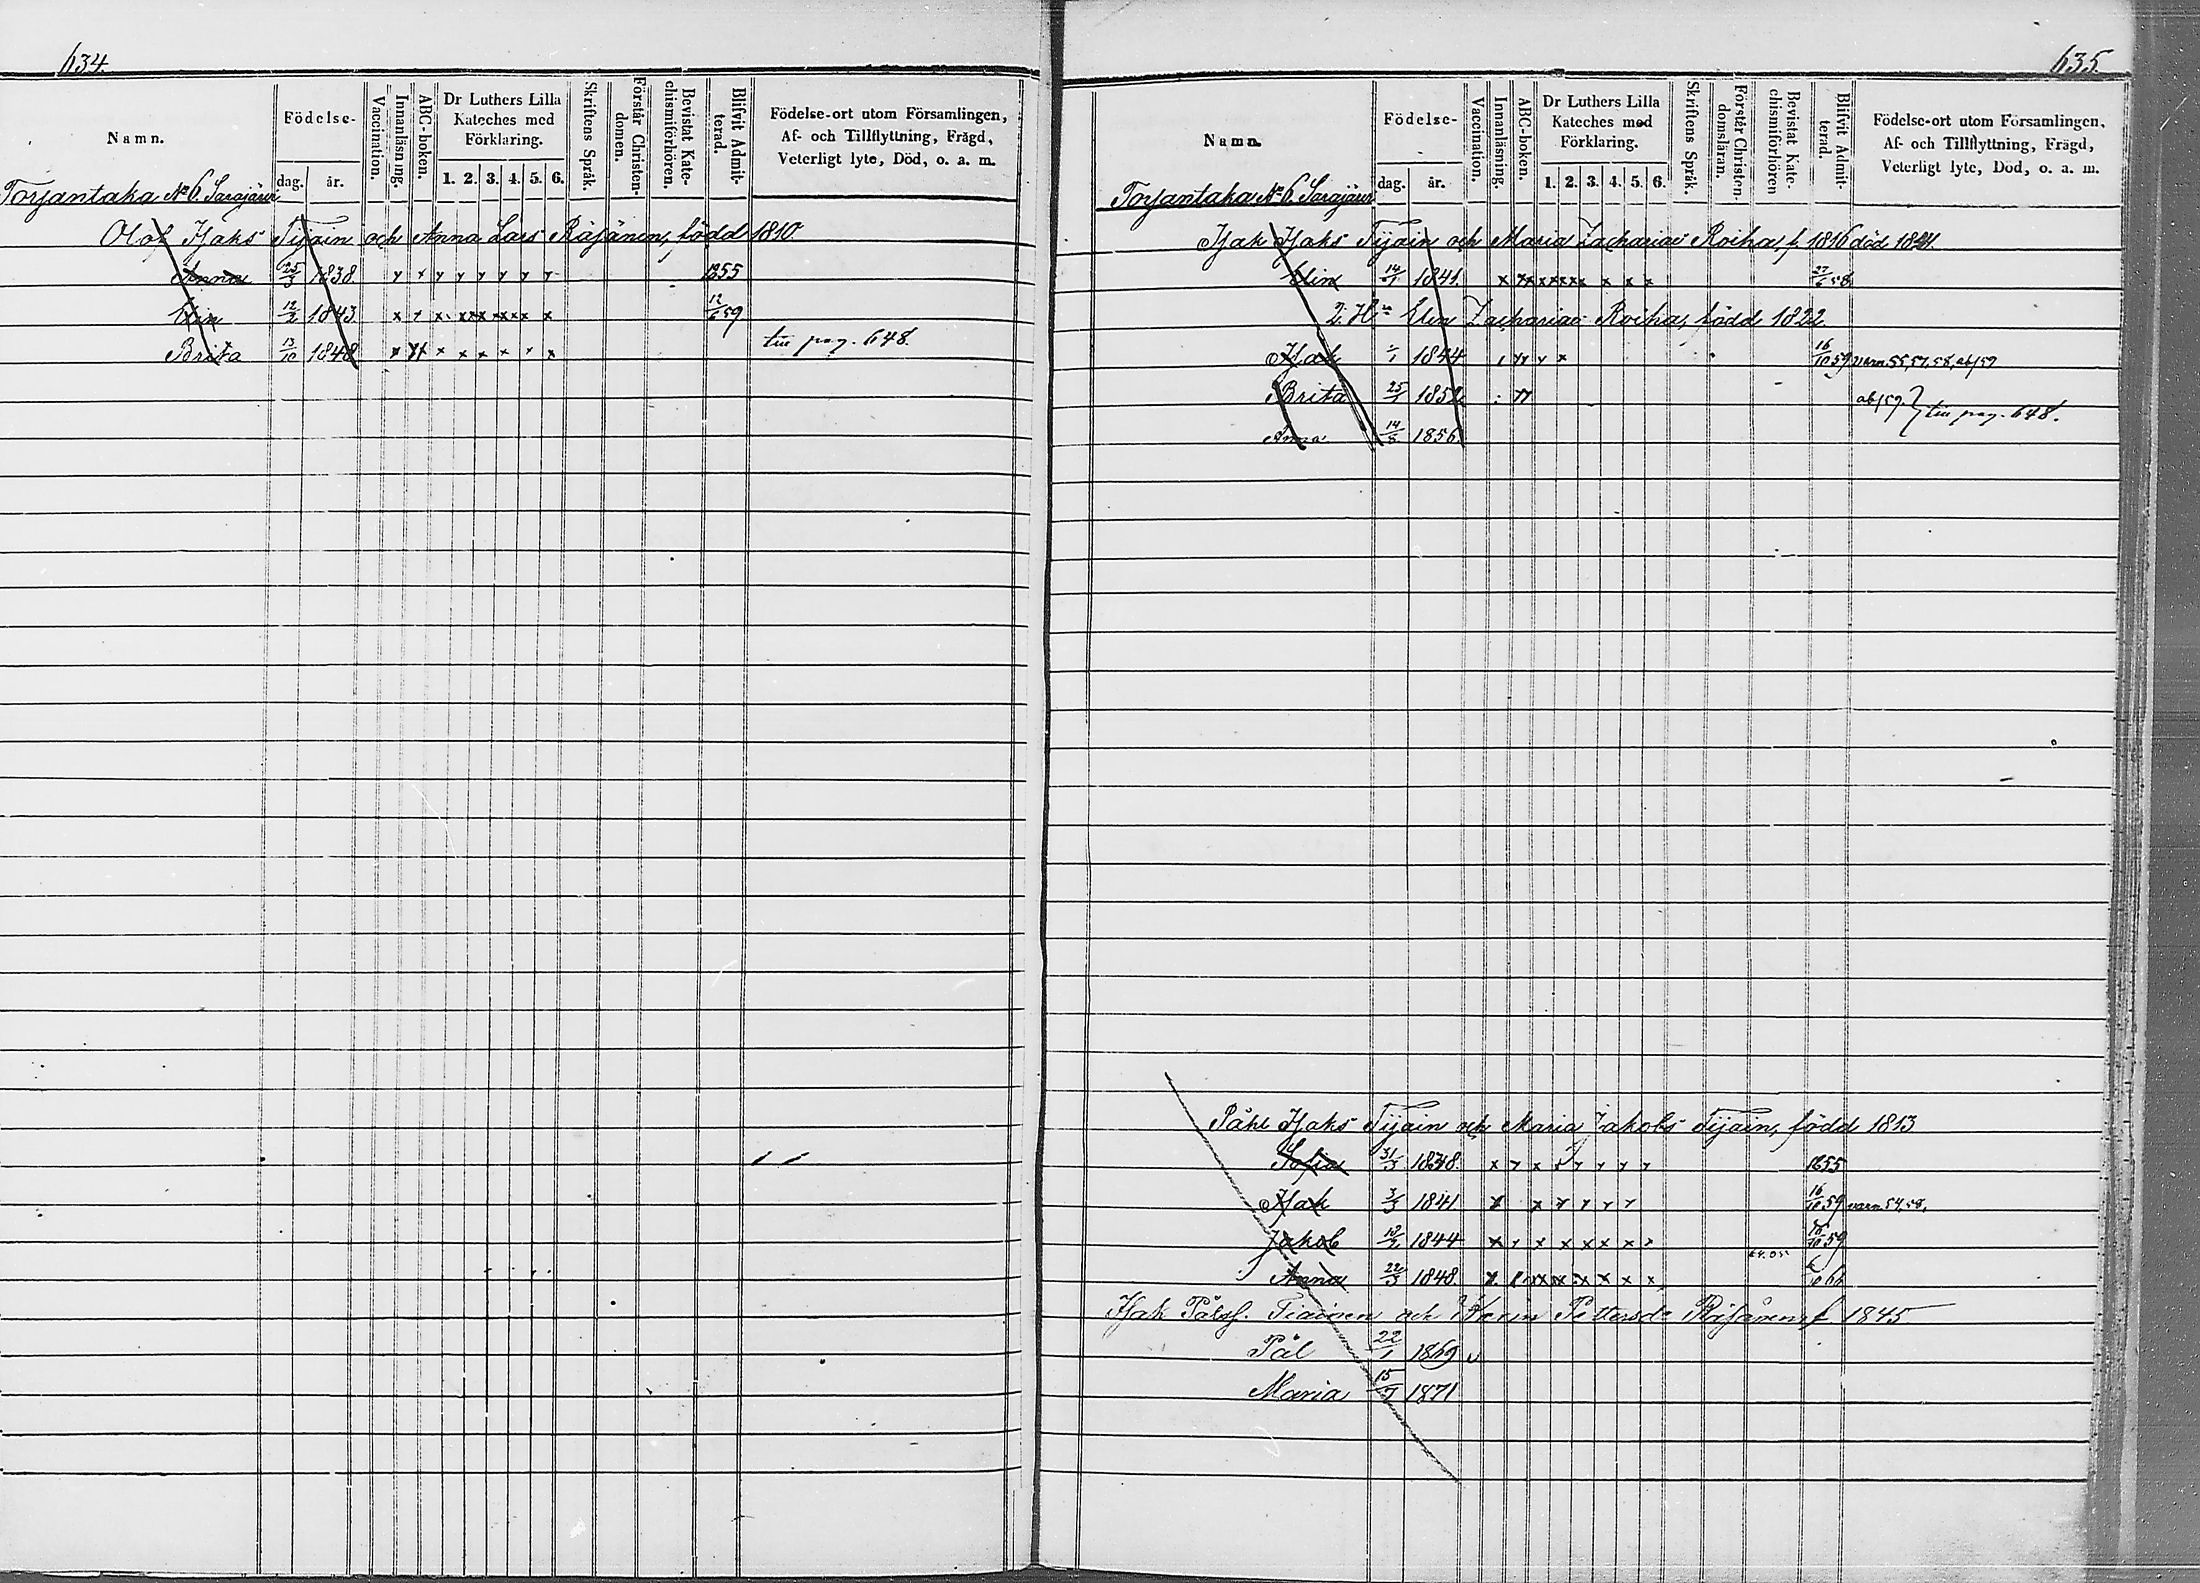 634.
Namn.
Födelse-
dag.
år.
Vaccination.
Innanläsning.
ABC-boken.
Dr Luthers Lilla
Kateches med
Förklaring.
1. 2. 3. 4. 5. 6.
Skriftens Språk.
Förstår Christen-
domen.
Bevistat Kate-
chismiförhören.
Blifvit Admit-
terad.
Födelse-ort utom Församlingen,
Af- och Tillflyttning, Frägd,
Veterligt lyte, Död, o. a. m.
Torjantaka No 6. Sarajärvi
Olof Isaks Tijain och Anna Lars Räsänen, född 1810.
Anna 25/3 1838. 1855
Elin 12/2 1843. 12/6 59
Brita 13/10 1848 till pag. 648.
635.
Namn.
Födelse-
dag.
år.
Vaccination.
Innanläsning.
ABC-boken.
Dr Luthers Lilla
Kateches med
Förklaring.
1. 2. 3. 4. 5. 6.
Skriftens Språk.
Förstår Christen-
domsläran.
Bevistat Kate-
chismiförhören
Blifvit Admit-
terad.
Födelse-ort utom Församlingen,
Af- och Tillflyttning, Frägd,
Veterligt lyte, Död, o. a. m.
Torjantaka No 6. Sarajärvi
Isak Isaks Tijain och Maria Zacharias Roiha, f. 1816 död
Elin 1841. 22/6 58
2. H Elin Zacharias Roiha, född 1822.
Isak 1844 16/10 59 varn. 55, 57, 58, abs 59
Brita 1852 abs 59.
till pag. 648.
Anna 14/8 1856.
Påhl Isaks Tijain och Maria Jakobs Tijain, född 1813
Sofia 31/3 1838. 1855
Isak 3/3 1841 16/10 59 varn 57, 58,
Jakob 1844 16/10 59
Anna 22/3 1848. 66
Isak Pålss. Tiainen och Karin Pettersdr Räsänen f 1845
Pål 22/1 1869
Maria 15/7 1871